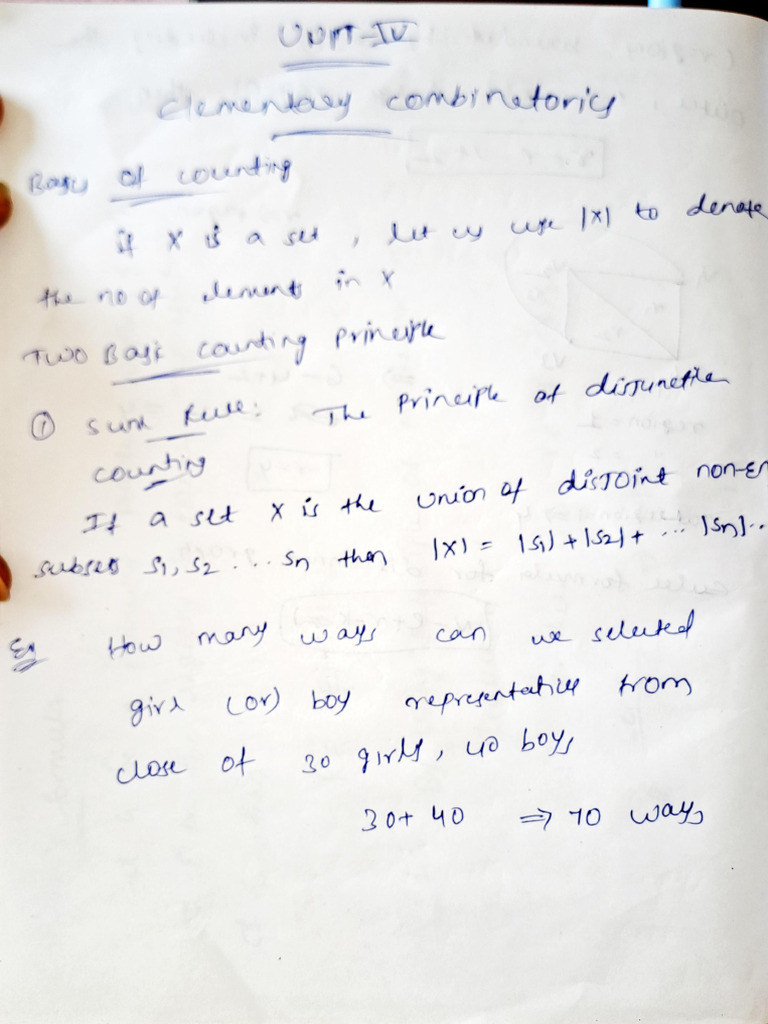 UNIT-IV
elementary combinatorics
Basis of counting
if X is a set, let us use |X| to denote
the no of elements in X
TWO Basic counting principle
① Sum Rule: The principle of disjunctive
counting
If a set X is the union of disjoint non-em
subsets S1, S2 ... Sn then |X| = |S1| + |S2| + ... |Sn|..
Eg How many ways can we selected
girl (or) boy representative from
close of 30 girls, 40 boys
30+ 40 ⇒ 70 ways